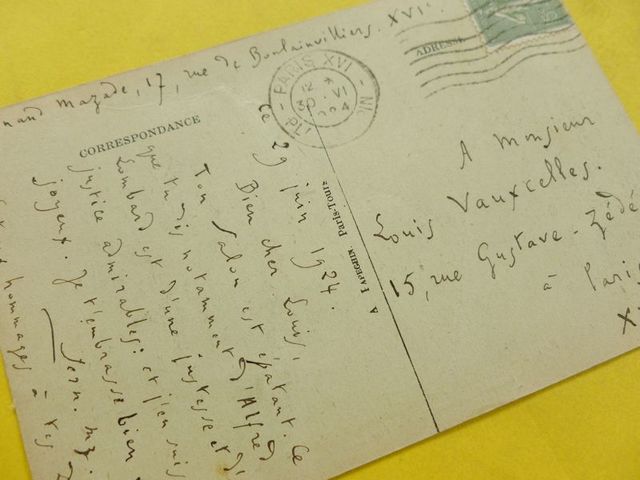 nand Mazade, 17, rue de Boulainvilliers. XVIe.
CORRESPONDANCE
ADRESSE
PARIS XVI
12 *
30 VI
Ce 29 juin 1924.
Bien cher Louis,
Ton Salon est épatant. Ce
que tu dis notamment d'Alfred
Lombard est d'une justesse et d'
justice admirables: et j'en suis
joyeux. Je t'embrasse bien
Fern. Mz.
hommages à tes
A PAPEGHIN, Paris-Tours
A Monsieur
Louis Vauxcelles.
15, rue Gustave-Zédé
à Paris
X